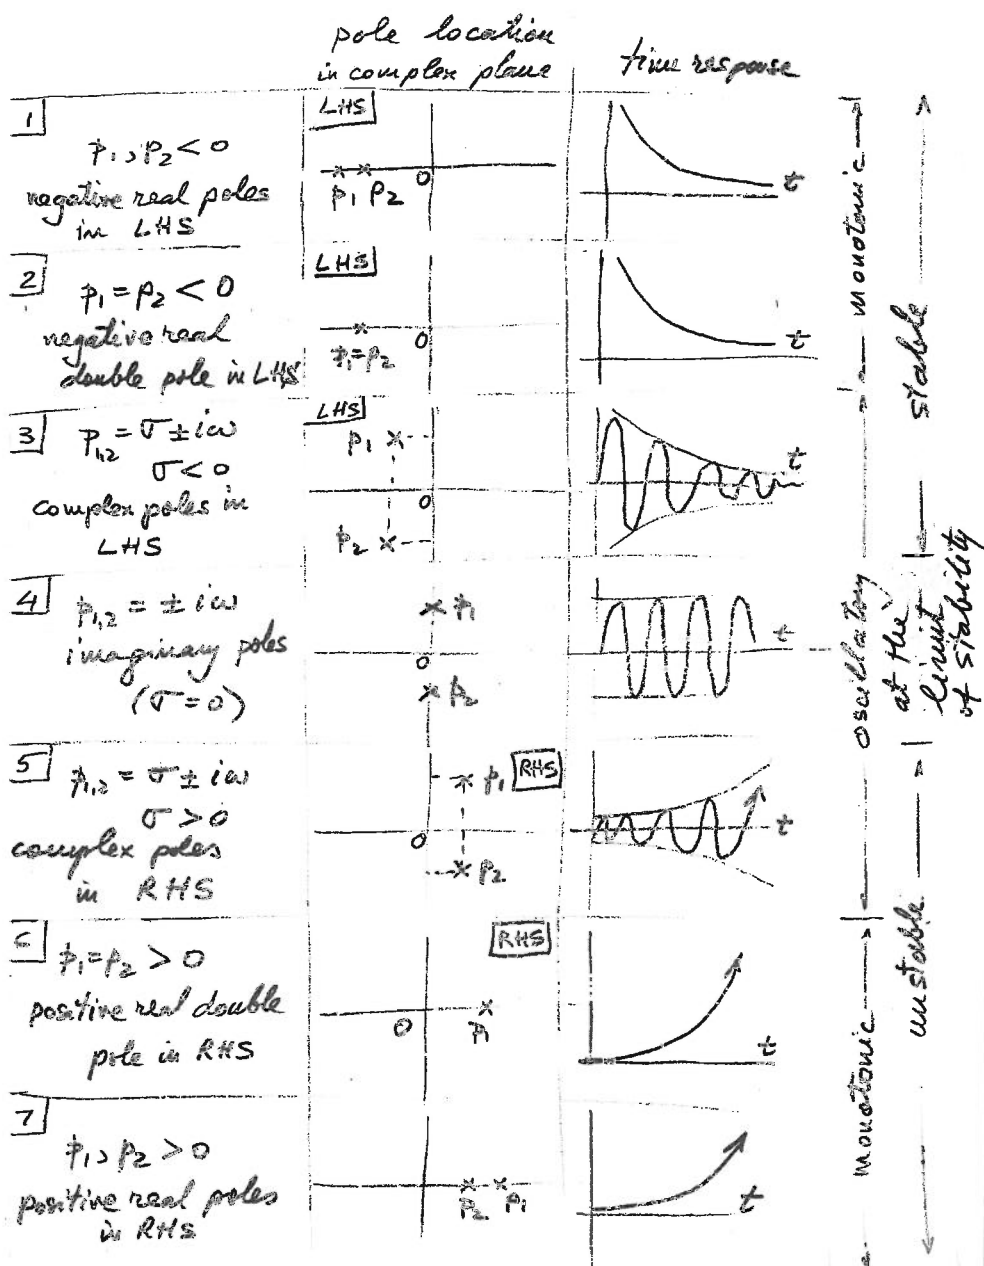 pole location
in complex plane
time response
1
p₁, p₂ < 0
negative real poles
in LHS
LHS
p₁ p₂
0
t
2
p₁ = p₂ < 0
negative real
double pole in LHS
LHS
p₁=p₂
0
t
3
p₁,₂ = σ ± iω
σ < 0
complex poles in
LHS
LHS
p₁
0
p₂
t
4
p₁,₂ = ± iω
imaginary poles
(σ = 0)
p₁
0
p₂
t
5
p₁,₂ = σ ± iω
σ > 0
complex poles
in RHS
p₁
RHS
0
p₂
t
6
p₁ = p₂ > 0
positive real double
pole in RHS
RHS
0
p₁
t
7
p₁, p₂ > 0
positive real poles
in RHS
p₂ p₁
t
monotonic
oscillatory
monotonic
stable
at the
limit
of stability
unstable